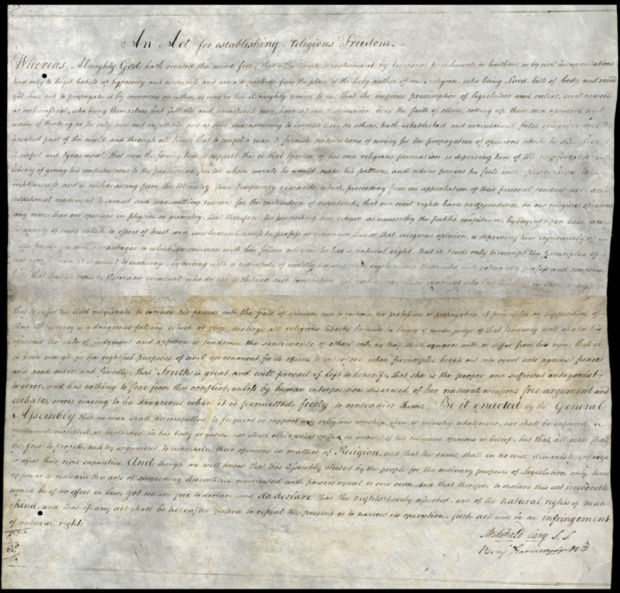 An Act for establishing religious Freedom.
Whereas, Almighty God hath created the mind free, that all attempts to influence it by temporal punishments or burthens or by civil incapacitations
tend only to beget habits of hypocrisy and meanness and are a departure from the plan of the holy author of our religion, who being Lord, both of body and mind
yet chose not to propagate it by coercions on either, as was in his Almighty power to do, that the impious presumption of legislators and rulers, civil as well
as ecclesiastical, who being themselves but fallible and uninspired men have assumed dominion over the faith of others, setting up their own opinions and
modes of thinking as the only true and infallible, and as such endeavouring to impose them on others, hath established and maintained false religions over the
greatest part of the world and through all time; that to compel a man to furnish contributions of money for the propagation of opinions which he
is sinful and tyrannical; that even the forcing him to support this or that teacher of his own religious persuasion is depriving him of the comfortable
liberty of giving his contributions to the particular pastor whose morals he would make his pattern, and whose powers he feels most
and is withdrawing from the Ministry those temporary rewards, which, proceeding from an approbation of their personal conduct are
additional incitement to earnest and unremitting labours for the instruction of mankind; that our civil rights have no dependence on our religious opinions
any more than our opinions in physics or geometry, that therefore the proscribing any citizen as unworthy the public confidence, by laying upon him an
incapacity of being called to offices of trust and emolument, unless he profess or renounce this or that religious opinion, is depriving him injuriously of
those privileges and advantages to which, in common with his fellow citizens, he has a natural right, that it tends only to corrupt the principles of
that to encourage, by bribing with a monopoly of worldly
that to suffer the civil magistrate to intrude his powers into the field of opinion and to restrain the profession or propagation of principles on supposition of
their ill tendency is a dangerous fallacy which at once destroys all religious liberty because he being of course judge of that tendency will make his
opinions the rule of judgment and approve or condemn the sentiments of others only as they shall square with or differ from his own; that it
is time enough for the rightful purposes of civil government for its officers to interfere when principles break out into overt acts against peace
and good order; and finally, that Truth is great and will prevail if left to herself, that she is the proper and sufficient antagonist
to error, and has nothing to fear from the conflict, unless by human interposition disarmed of her natural weapons free argument and
debate, errors ceasing to be dangerous when it is permitted freely to contradict them: Be it enacted by the General
Assembly that no man shall be compelled to frequent or support any religious worship, place, or ministry whatsoever, nor shall be enforced,
restrained, molested, or burthened in his body or goods, nor shall otherwise suffer on account of his religious opinions or belief, but that all men shall
be free to profess, and by argument to maintain, their opinions in matters of Religion, and that the same shall in no wise diminish, enlarge
or affect their civil capacities. And though we well know that this Assembly elected by the people for the ordinary purposes of Legislation only, have
no power to restrain the acts of succeeding Assemblies constituted with powers equal to our own, and that therefore to declare this act irrevocable
would be of no effect in law, yet we are free to declare, and do declare that the rights hereby asserted, are of the natural rights of man-
kind, and that if any act shall be hereafter passed to repeal the present or to narrow its operation, such act will be an infringement
of natural right.
Archibald Cary S.S.
Benj Harrison